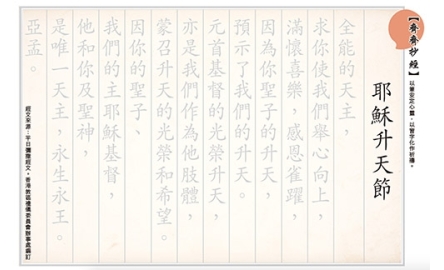 【齊齊抄經】
以書安定心靈，以習字化作祈禱。
耶穌升天節
全能的天主，
求你使我們舉心向上，
滿懷喜樂，感恩雀躍，
因為你聖子的升天，
預示了我們的升天。
元首基督的光榮升天，
亦是我們作為他肢體，
蒙召升天的光榮和希望。
因你的聖子、
我們的主耶穌基督，
他和你及聖神，
是唯一天主，永生永王。
亞孟。
經文來源：平日彌撒經文，香港教區禮儀委員會辦事處編訂